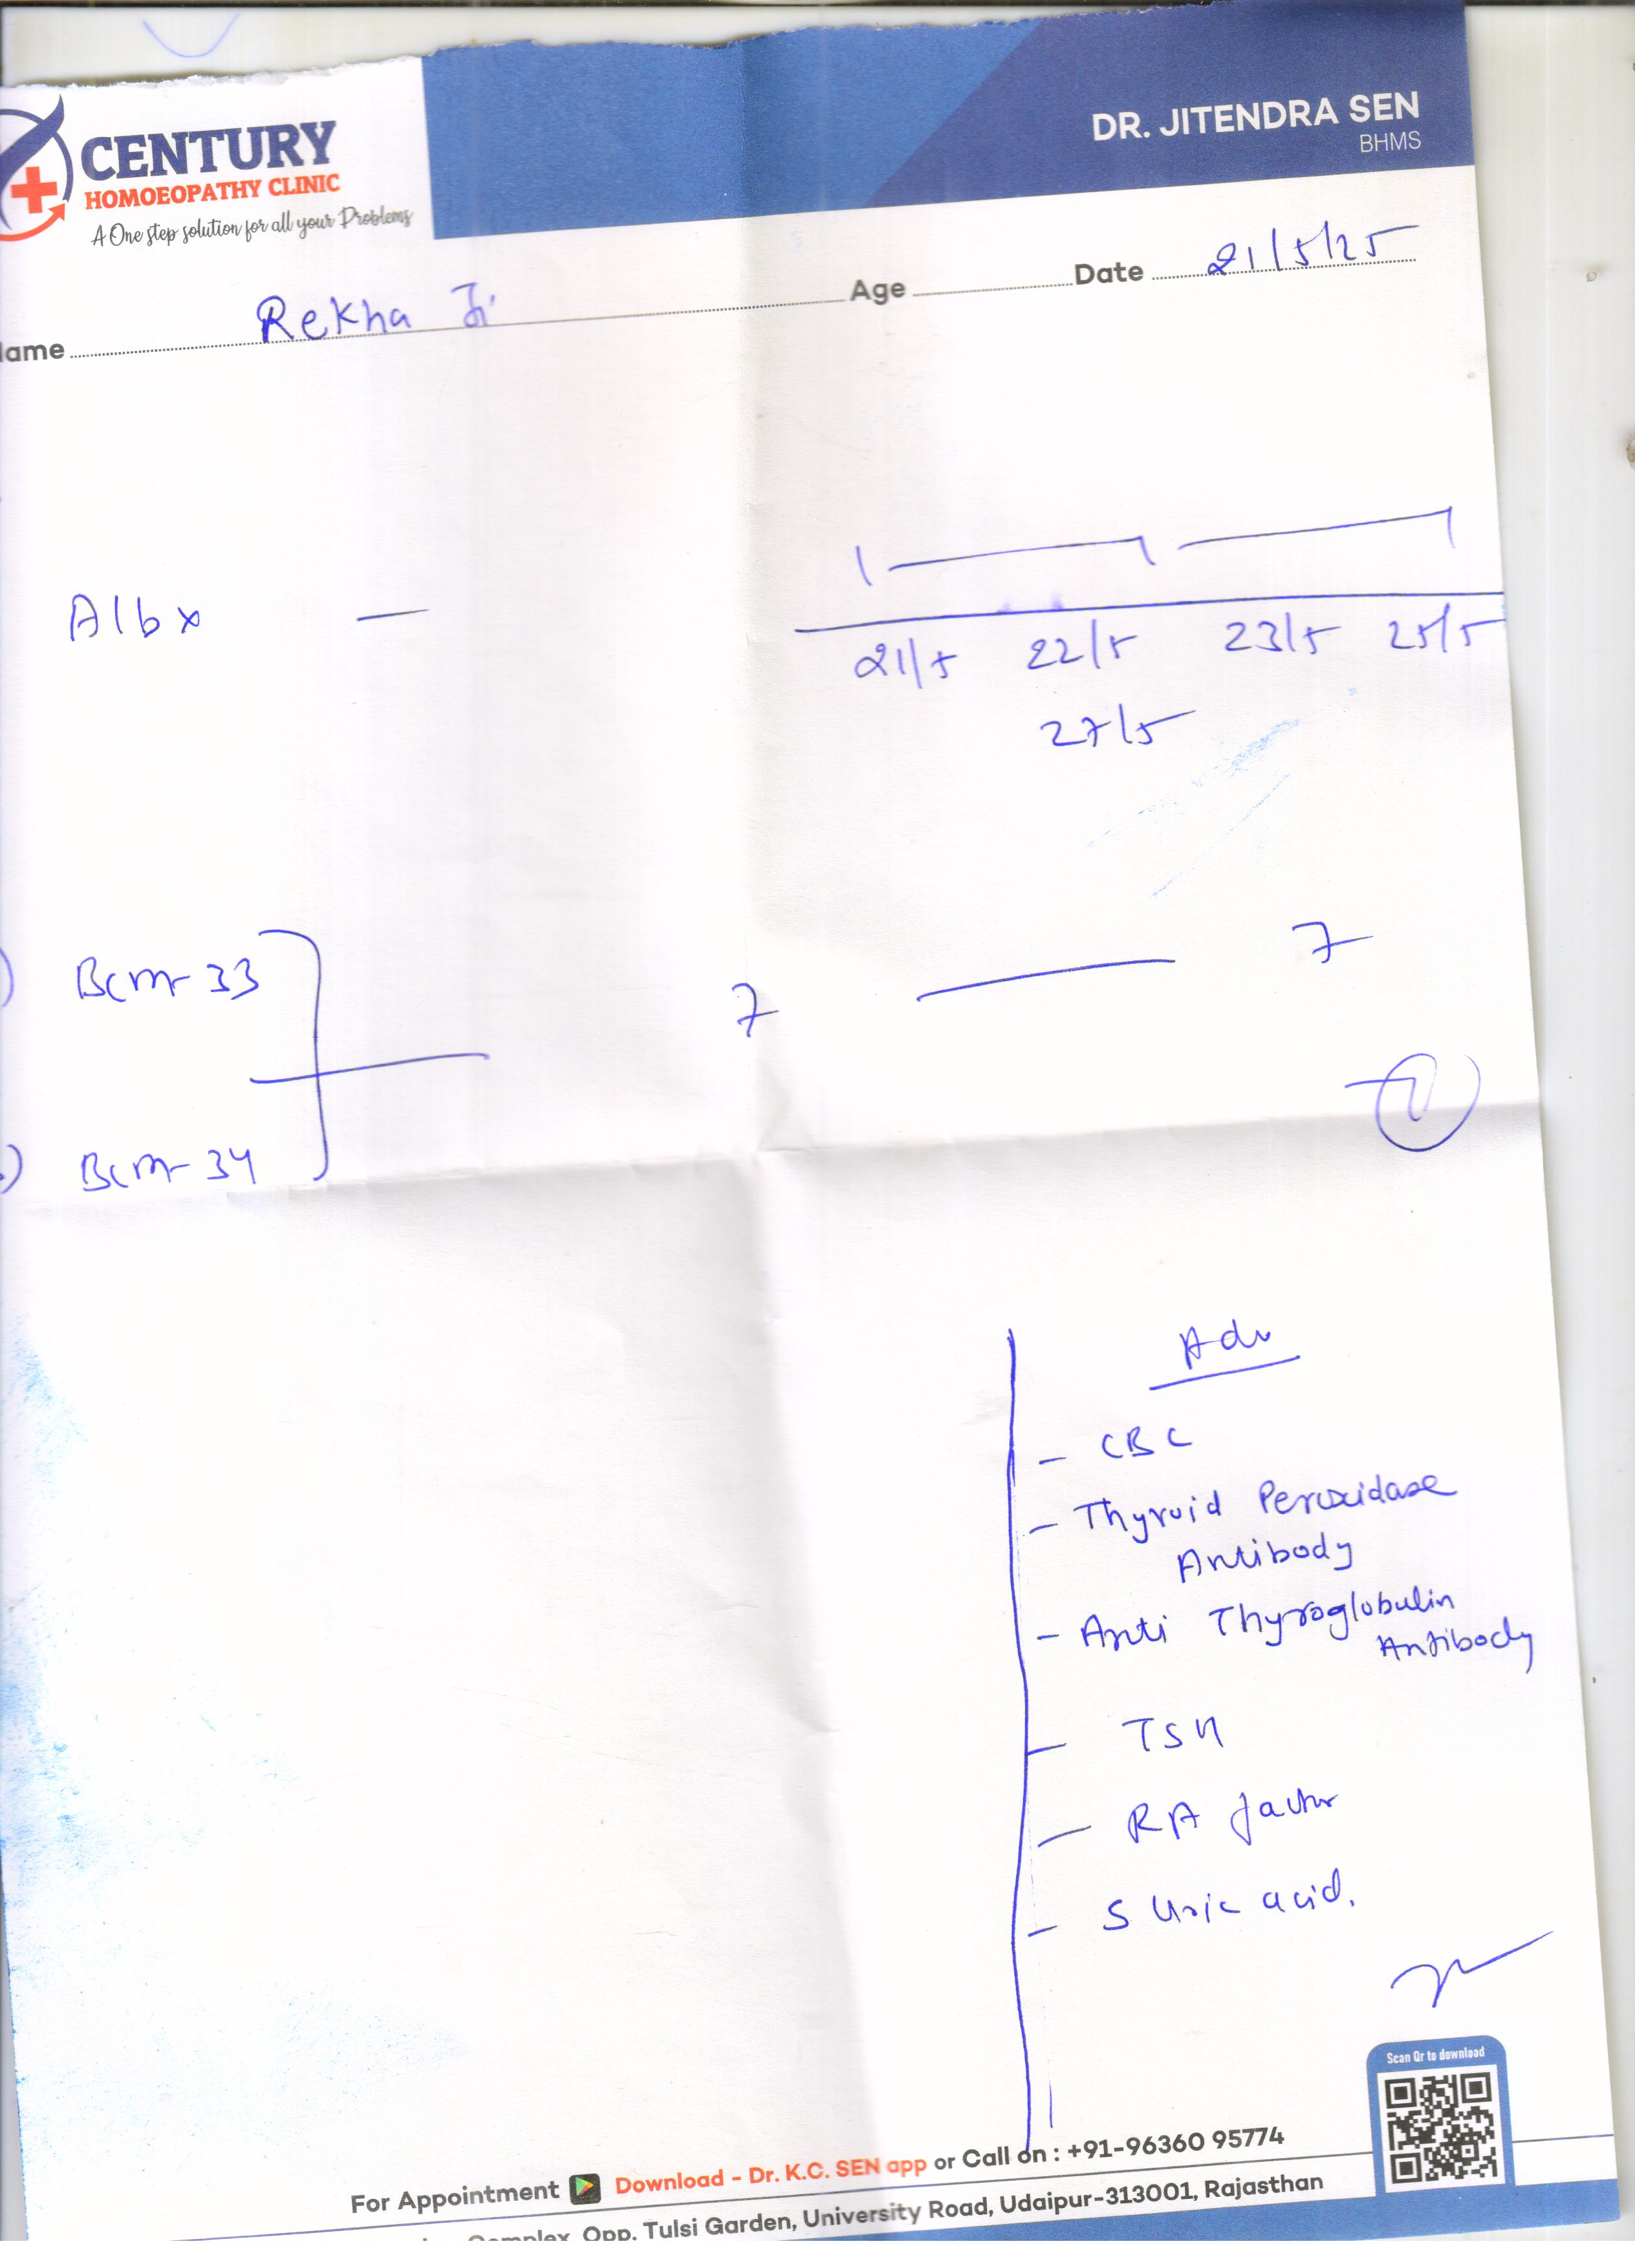 CENTURY
HOMOEOPATHY CLINIC
A One step solution for all your Problems
DR. JITENDRA SEN
BHMS
ame Rekha Ji Age Date 21/5/25
Albx —
21/5 22/5 23/5 25/5
27/5
Bcm-33
7 — 7
Bcm-34
Adv
- CBC
- Thyroid Peroxidase
Antibody
- Anti Thyroglobulin
Antibody
- TSH
- RA factor
- S Uric acid.
Scan Qr to download
For Appointment Download - Dr. K.C. SEN app or Call on : +91-96360 95774
Complex, Opp. Tulsi Garden, University Road, Udaipur-313001, Rajasthan